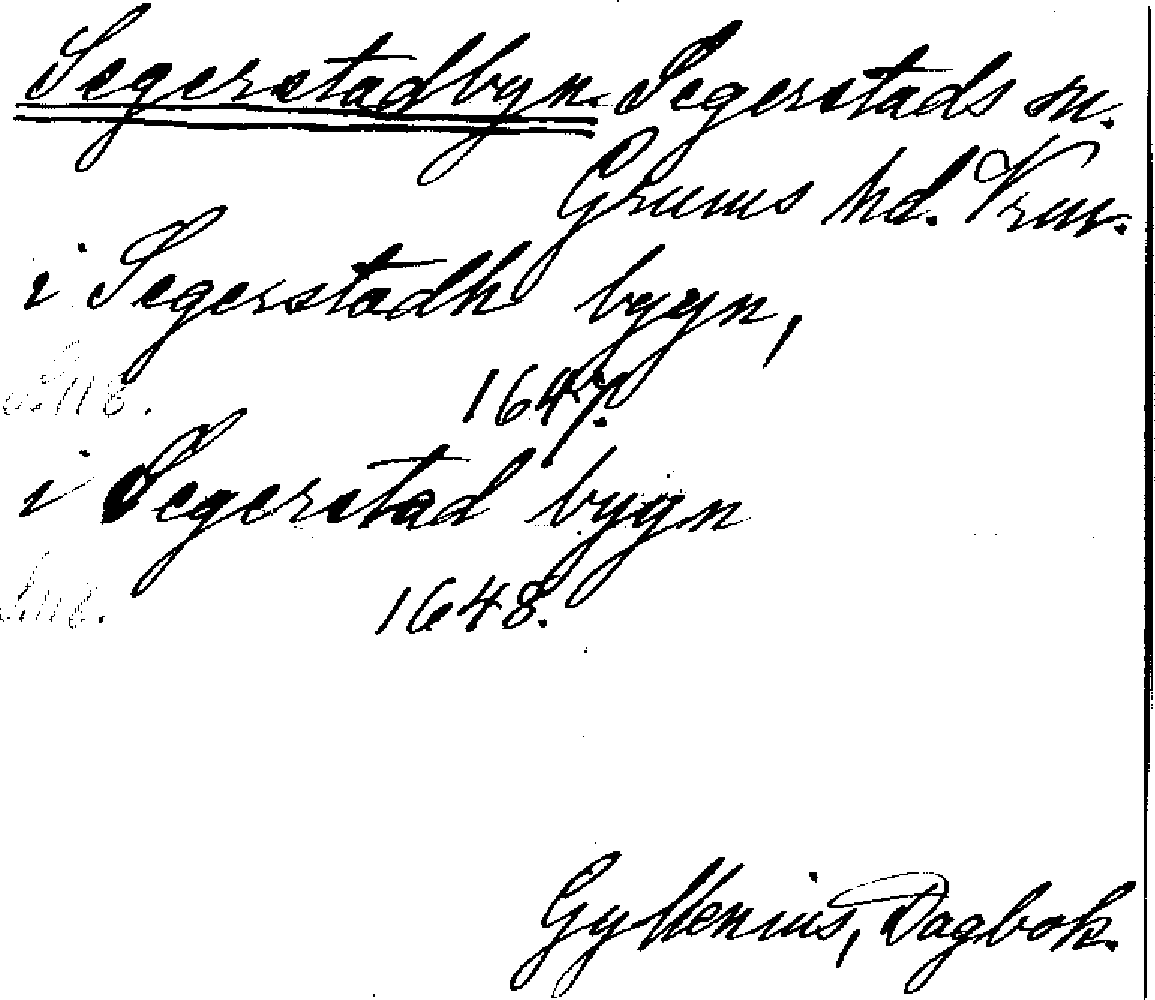 Segerstadbyn. Segerstads sn.
Grums hd. Vrm.
i Segerstadh bygn,
1647.
i Segerstad bygn
1648.
Gyllenius, Dagbok.